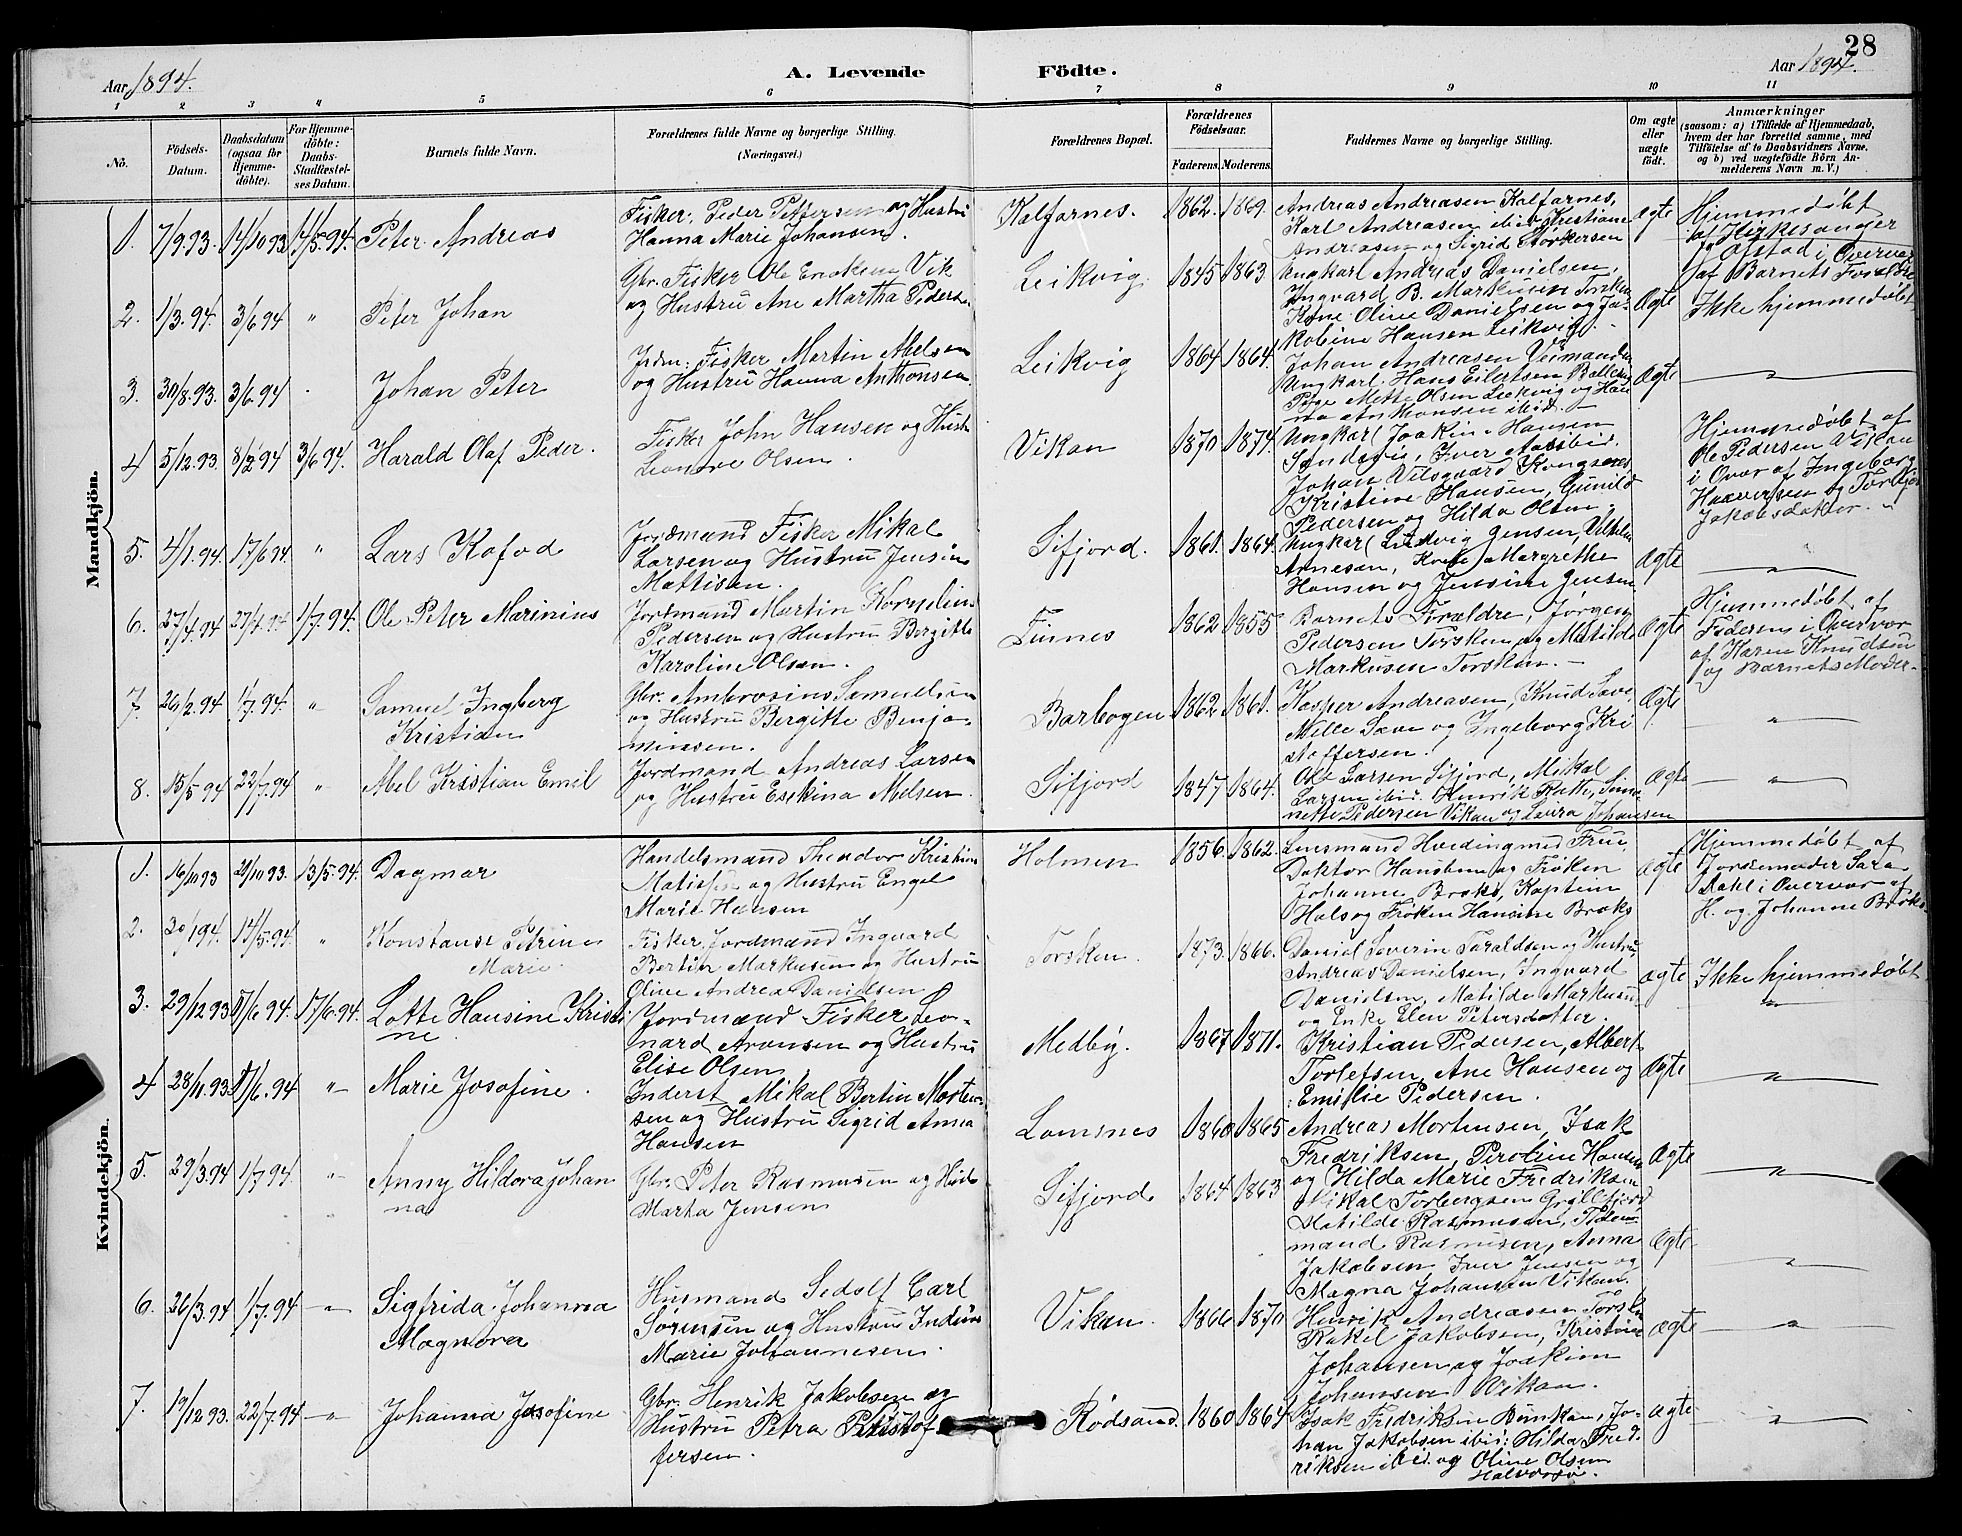 28
Aar 1894.
A. Levende Födte.
Aar 1894.
1 2 3 4 5 6 7 8 9 10 11
No.
Födsels-Datum.
Daabsdatum (ogsaa for Hjemmedöbte).
For Hjemmedöbte: Daabs-Stadfæstelses Datum.
Barnets fulde Navn.
Forældrenes fulde Navne og borgerlige Stilling.
(Næringsvei.)
Forældrenes Bopæl.
Forældrenes Födselsaar.
Faderens. Moderens.
Faddernes Navne og borgerlige Stilling.
Om ægte eller uægte födt.
Anmærkninger
(saasom: a) i Tilfælde af Hjemmedaab, hvem der har forrettet samme, med Tilföielse af to Daabsvidners Navne, og b) ved uægtefödte Börn Anmelderens Navn m. V.)
Mandkjön.
1. 7/9 93. 14/10 93 14/5 94. Peter Andreas
Fisker. Peder Pettersen og Hustru
Hanna Marie Johansen.
Kalfarnes. 1862. 1869.
Andreas Andreasen Kalfarnes,
Karl Andreasen ibid, Kristiane
Andreasen og Sigrid Störkersen
ægte
Hjemmedøbt
af Kirkesanger
Ofstad i Overvær
af Barnets Forældre
2. 1/3. 94. 3/6 94 " Peter Johan
Gbr. Fisker Ole Eriksen Vik
og Hustru Ane Martha Peders
Leikvig 1845 1863
Ungkarl Andreas Danielsen,
Ingvard B. Markusen Torsken
Kone Oline Danielsen og Ja-
kobine Hansen Leikvig.
Ægte
Ikke hjemmedøbt
3. 30/8. 93. 3/6 94 Johan Peter
Jrdm: Fisker Martin Abelsen
og Hustru Hanna Anthonsen
Leikvig 1864 1864.
Johan Andreasen
Ungkarl. Hans Eilertsen
Pige Mette Olsen Leikvig og Han
na Anthonsen ibid.
Ægte
"
4 5/12. 93. 8/2 94 3/6 94. Harald Olaf Peder.
Fisker John Hansen og Hust
Leonore Olsen.
Vikan 1870 1874.
Ungkarl Joakim Hansen
Iver
Johan
Kristine Hansen, Gunild
Pedersen og Hilda Olsen.
Hjemmedøbt af
Ole Pedersen Vikan
i Ovær af Ingeborg
Haaversen og
Jakobsdatter.
5. 4/1. 94. 17/6 94 " Lars Kofod
Jordmand Fisker Mikal
Larsen og Hustru Jensine
Mattisen.
Sifjord. 1861. 1864.
Ungkarl Ludvig Jensen, Vilhelm
Arnesen, Kone Margrethe
Hansen og Jensine Jensen
Ægte
"
6. 27/4. 94 27/4. 94 1/7. 94. Ole Peter Marinius
Jordmand Martin Kornelius
Pedersen og Hustru Bergitte
Karoline Olsen.
Finnes 1862 1855
Barnets Forældre, Jørgen
Pedersen Torsken og Matilde
Markusen Torsken. -
Ægte
Hjemmedøbt af
Faderen i Overvær
af Karen Knudsen
og Barnets Moder
7. 26/2. 94 1/7. 94. " Samuel Ingberg
Kristian
Gbr. Ambrosius Samuelsen
og Hustru Bergitte Benja-
minsen.
Barbogen 1862 1861.
Kasper Andreasen, Knud
og Ingeborg Kri
stoffersen.
Ægte
"
8. 15/5 94 22/7. 94 " Mel Kristian Emil
Jordmand Andreas Larsen
og Hustru Esekina Melsen
Sifjord 1847 1864.
Ole Larsen Sifjord, Mikal
Larsen ibid. Henrik
nette Pedersen Vikan og Laura Johansen
ægte
"
Kvindekjön.
1. 16/10 93 29/10 93. 13/5. 94. Dagmar
Handelsmand Theodor Kristian
og Hustru Engel
Marie Hansen
Holmen 1856. 1862.
Lensmand Hvedingmed Frue,
Doktor Hansteen og Frøken
Johanne Broks, Kaptein
Hals og Frøken Hansine Broks
ægte
Hjemmedøbt af
Jordemoder Sara
Dahl i Overvær af
H. og Johanne Broks.
2. 94. 14/5. 94 " Konstanse Petrine
Marie.
Fisker, Jordmand Ingvard
Bertin Markusen og Hustru
Oline Andrea Danielsen
Torsken. 1873. 1866.
Daniel Severin Taraldsen og Hustru,
Andreas Danielsen, Ingvard
Danielsen, Matilde Markusen
og Enke Elen Petersdatter.
ægte
Ikke hjemmedøbt
3. 29/12 93 17/6 94. 17/6 94. Lotte Hansine Kristi
ne
Jordmand Fisker Leo-
nard Arvnsen og Hustru
Elise Olsen
Medby. 1867 1871.
Kristian Pedersen, Albert
Torlefsen, Ane Hansen og
Emilie Pedersen.
Ægte
"
4 28/11 93 17/6. 94 " Marie Josofine.
Inderst Mikal Bertin Morten-
sen og Hustru Sigrid Anna
Hansen
Lomsnes 1860 1865
Andreas Mortensen, Isak
Fredriksen, Peroline Hansen
og Hilda Marie Fredriksen
Ægte
"
5. 29/3. 94 1/7. 94 " Anny Hildora Johan
na
Gbr. Peter Rasmusen og Hust
Marta Jensen
Sifjord 1864 1863
Mikal Torbergsen Gryllefjord
Matilde Rasmusen,
mand Rasmusen, Anna
Jakobsen Iver Jensen og
Magna Johansen Vikan.
Ægte
"
6. 26/3. 94 1/7. 94 " Sigfrida Johanna
Magnora
Husmand Sedolf Carl
Sørensen og Hustru Indine
Marie Johannesen.
Vikan. 1866 1870
Henrik Andreasen Torsken
Rakel Jakobsen, Kristine
Johansen og Joakim
Johansen Vikan.
ægte
"
7. 19/12 93. 22/7. 94 " Johanna Josofine
Gbr. Henrik Jakobsen og
Hustru Petra Kristof
fersen.
Rödsand 1860 1864
Isak Fredriksen Bunkan, Jo-
han Jakobsen ibid: Hilda Fred
riksen ibid. og Oline Olsen
ægte
"